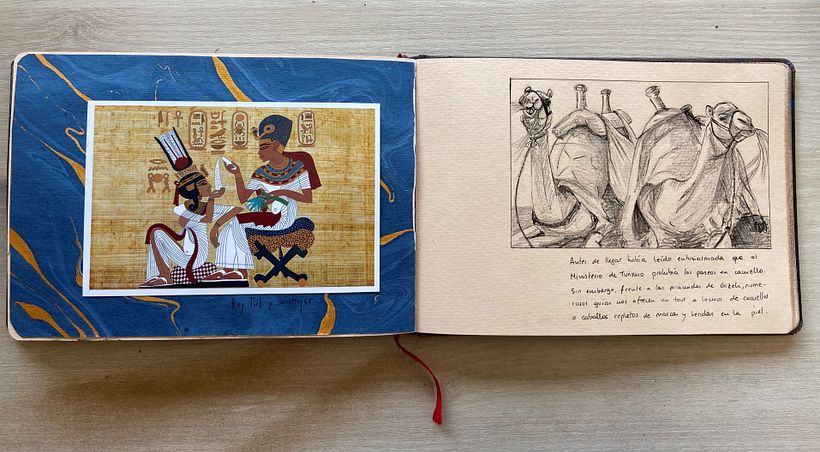 Rey Tut y su mujer
Antes de llegar había leído entusiasmada que el
Ministerio de Turismo prohibiría los paseos en camello.
Sin embargo, frente a las pirámides de Gizeh, nume-
rosos guías nos ofrecen un tour a lomos de camellos
o caballos repletos de marcas y heridas en la piel.